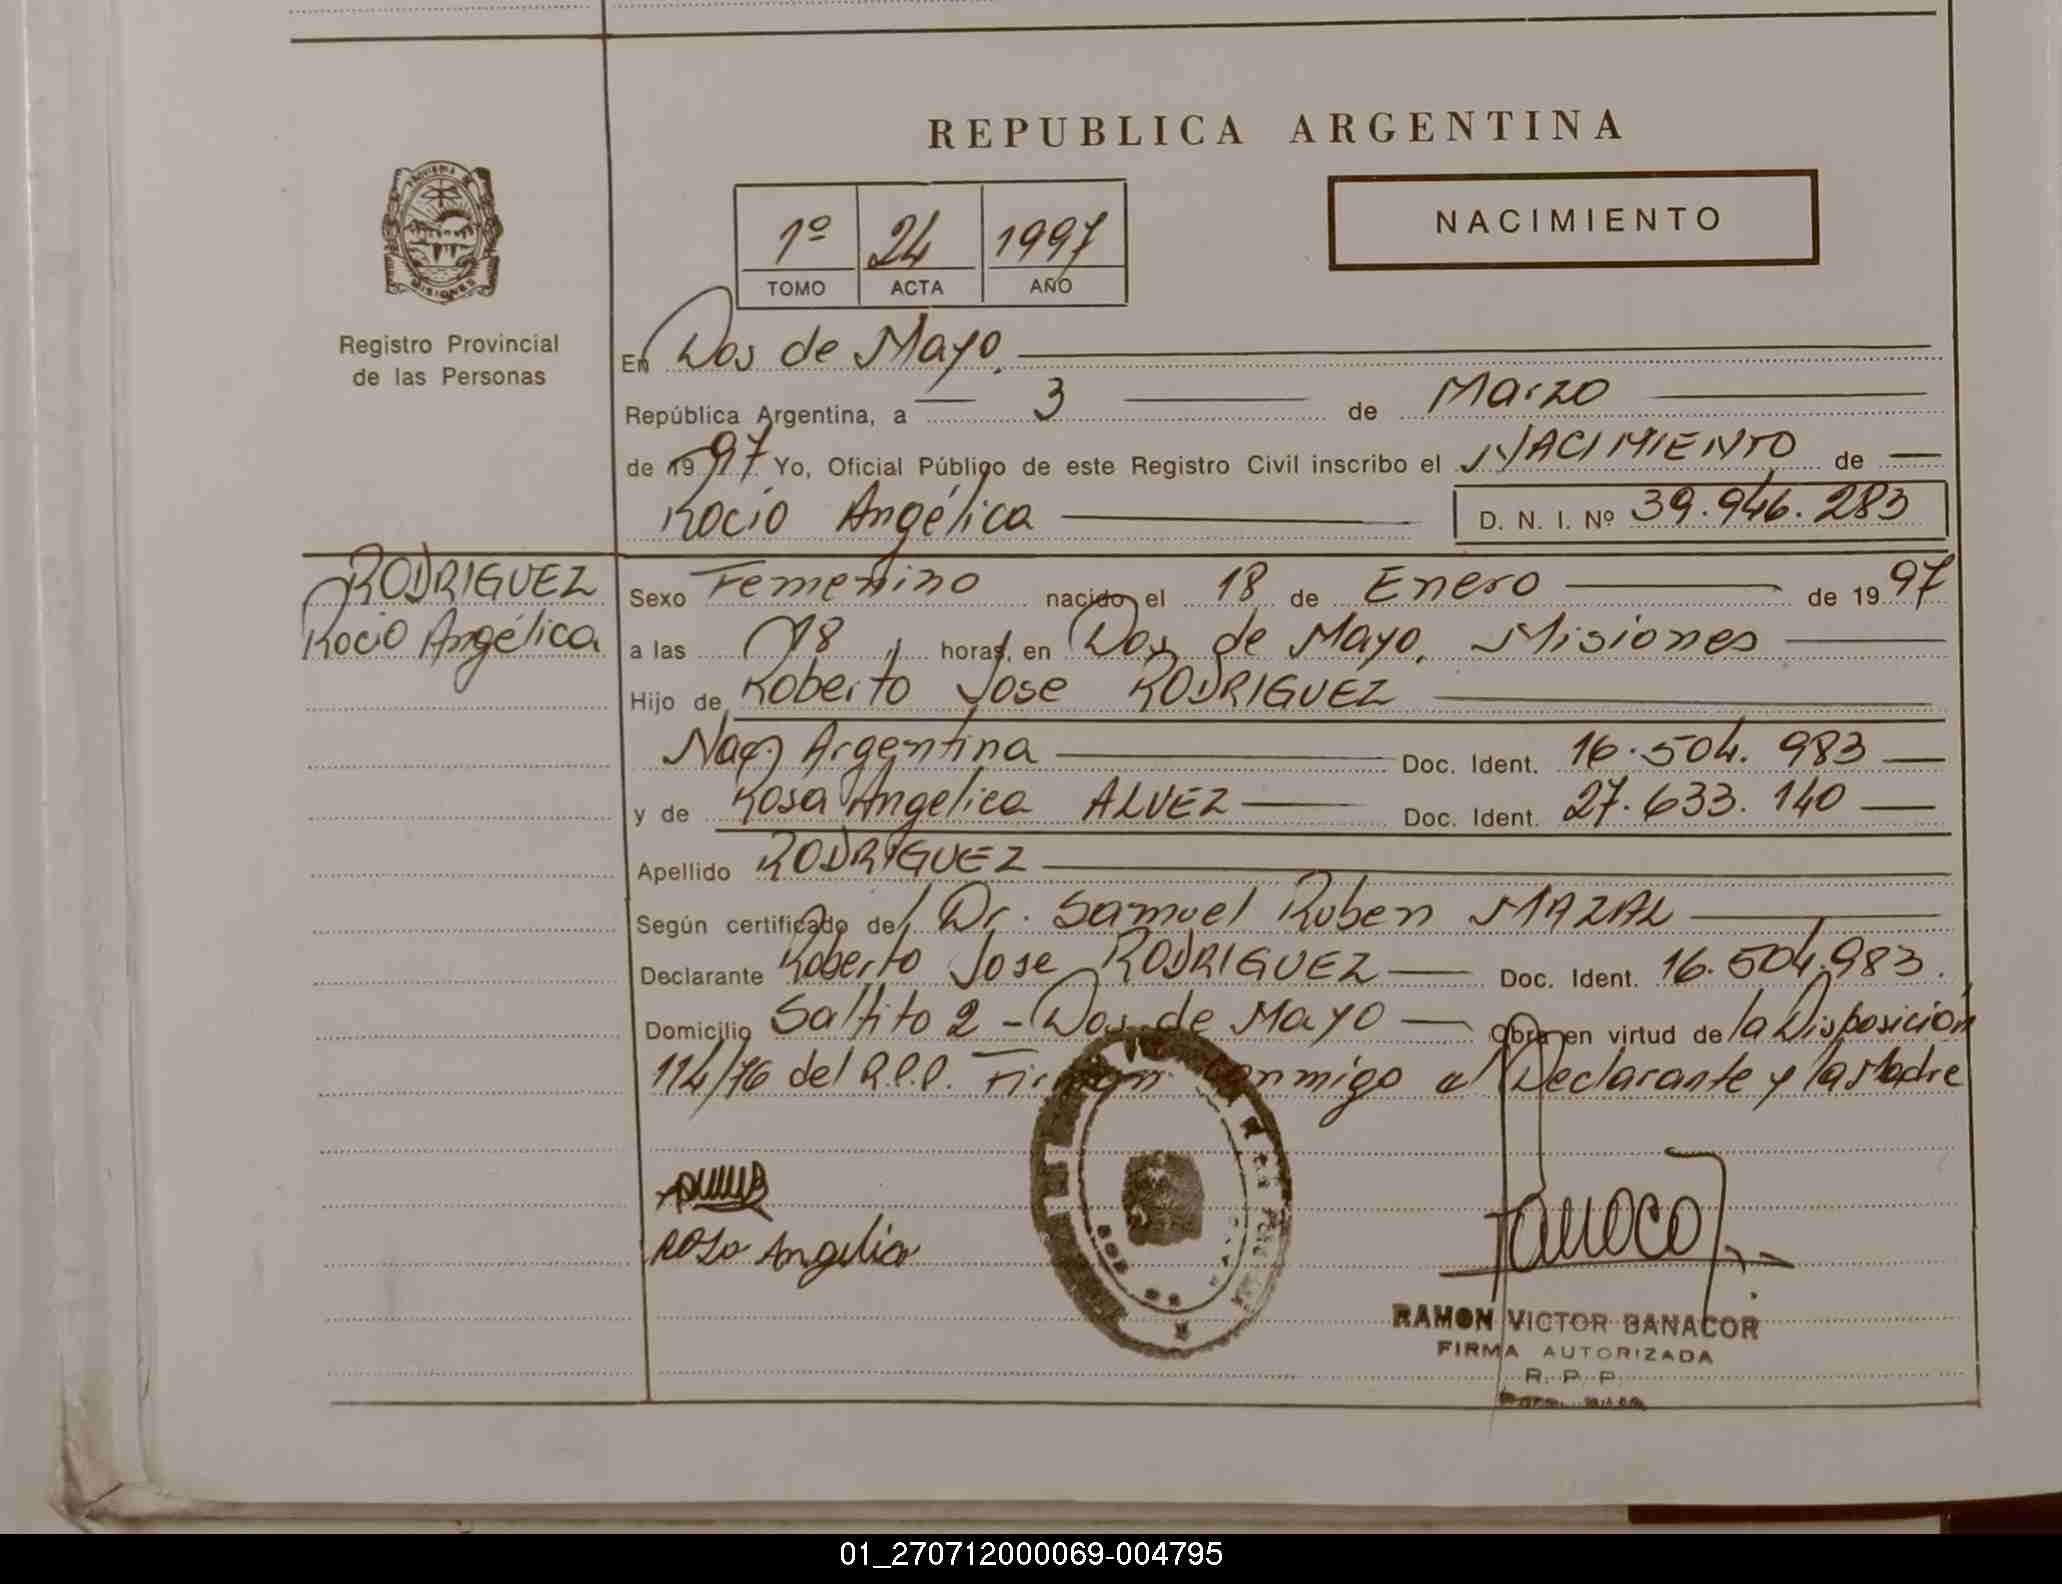 REPUBLICA ARGENTINA
NACIMIENTO
1º 24 1997
TOMO ACTA AÑO
MISIONES
Registro Provincial
de las Personas
En Dos de Mayo.
República Argentina, a 3 de Marzo
de 1997 Yo, Oficial Público de este Registro Civil inscribo el NACIMIENTO de
Rocio Angélica
D. N. I. Nº 39.946.283
RODRIGUEZ
Rocio Angélica
Sexo Femenino nacido el 18 de Enero de 1997
a las 18 horas, en Dos de Mayo, Misiones
Hijo de Roberto Jose RODRIGUEZ
Nac. Argentina Doc. Ident. 16.504.983
y de Rosa Angelica ALVEZ Doc. Ident. 27.633.140
Apellido RODRIGUEZ
Según certificado del Dr. Samuel Ruben MAZAL
Declarante Roberto Jose RODRIGUEZ Doc. Ident. 16.504.983.
Domicilio Saltito 2 - Dos de Mayo Obra en virtud de la Disposición
114/76 del R.P.P. Firman conmigo el Declarante y la Madre
Rosa Angelica
RAMON VICTOR BANACOR
FIRMA AUTORIZADA
R. P. P.
01_270712000069-004795